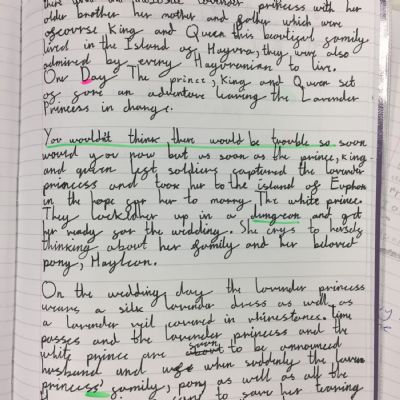 there was and adorable lavender princess with her
older brother her mother and father which were
ofcourse King and Queen this beautiful family
lived in the Island of Hayvra, they were also
admired by every Hayvranian to live.
One Day The prince, King and Queen set
of fore an adventure leaving the Lavender
Princess in charge.
You wouldn't think there would be trouble so soon
would you now but as soon as the prince, king
and queen left soldiers captured the lavender
princess and took her to the island of Euphon
in the hope for her to marry The white prince.
They lock her up in a dungeon and get
her ready for the wedding. She crys to herself
thinking about her family and her beloved
pony, Hayleon.
On the wedding day the lavender princess
wears a silk lavender dress as well as
a lavender veil covered in rhinestones. Time
passes and the lavender princess and the
white prince are soon to be announced
husband and wife when suddenly the
princess' family, pony as well as all the
to save her tearing